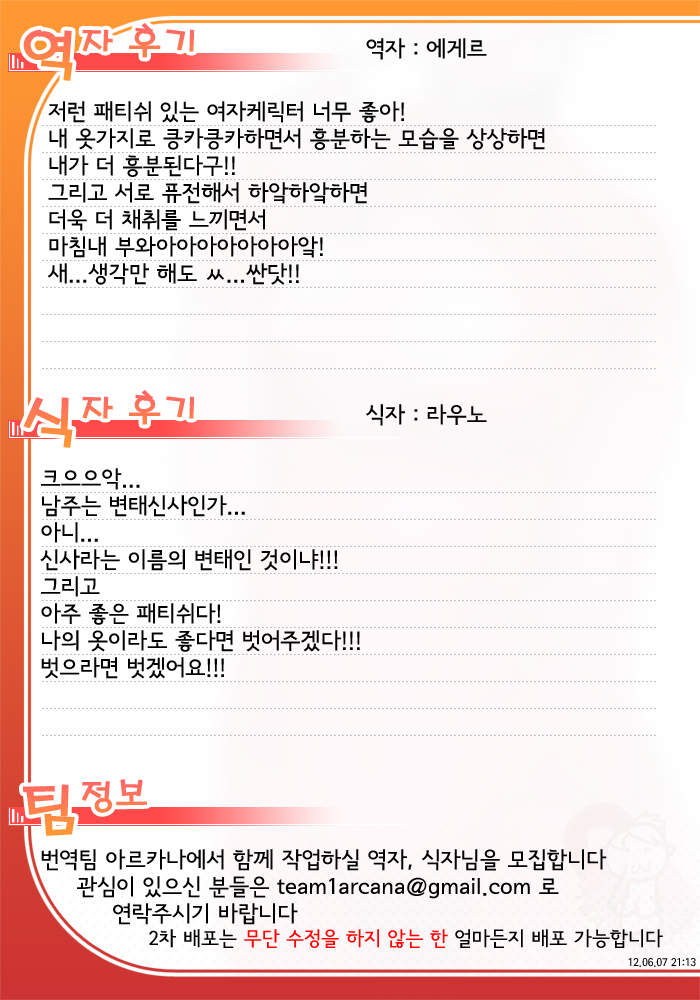 역자 후기
역자 : 에게르
저런 패티쉬 있는 여자케릭터 너무 좋아!
내 옷가지로 킁카킁카하면서 흥분하는 모습을 상상하면
내가 더 흥분된다구!!
그리고 서로 퓨전해서 하앜하앜하면
더욱 더 채취를 느끼면서
마침내 부와아아아아아아아앜!
새...생각만 해도 ㅆ...싼닷!!
식자 후기
식자 : 라우노
크으으악...
남주는 변태신사인가...
아니...
신사라는 이름의 변태인 것이냐!!!
그리고
아주 좋은 패티쉬다!
나의 옷이라도 좋다면 벗어주겠다!!!
벗으라면 벗겠어요!!!
팀정보
번역팀 아르카나에서 함께 작업하실 역자, 식자님을 모집합니다
관심이 있으신 분들은 team1arcana@gmail.com 로
연락주시기 바랍니다
2차 배포는 무단 수정을 하지 않는 한 얼마든지 배포 가능합니다
12.06.07 21:13